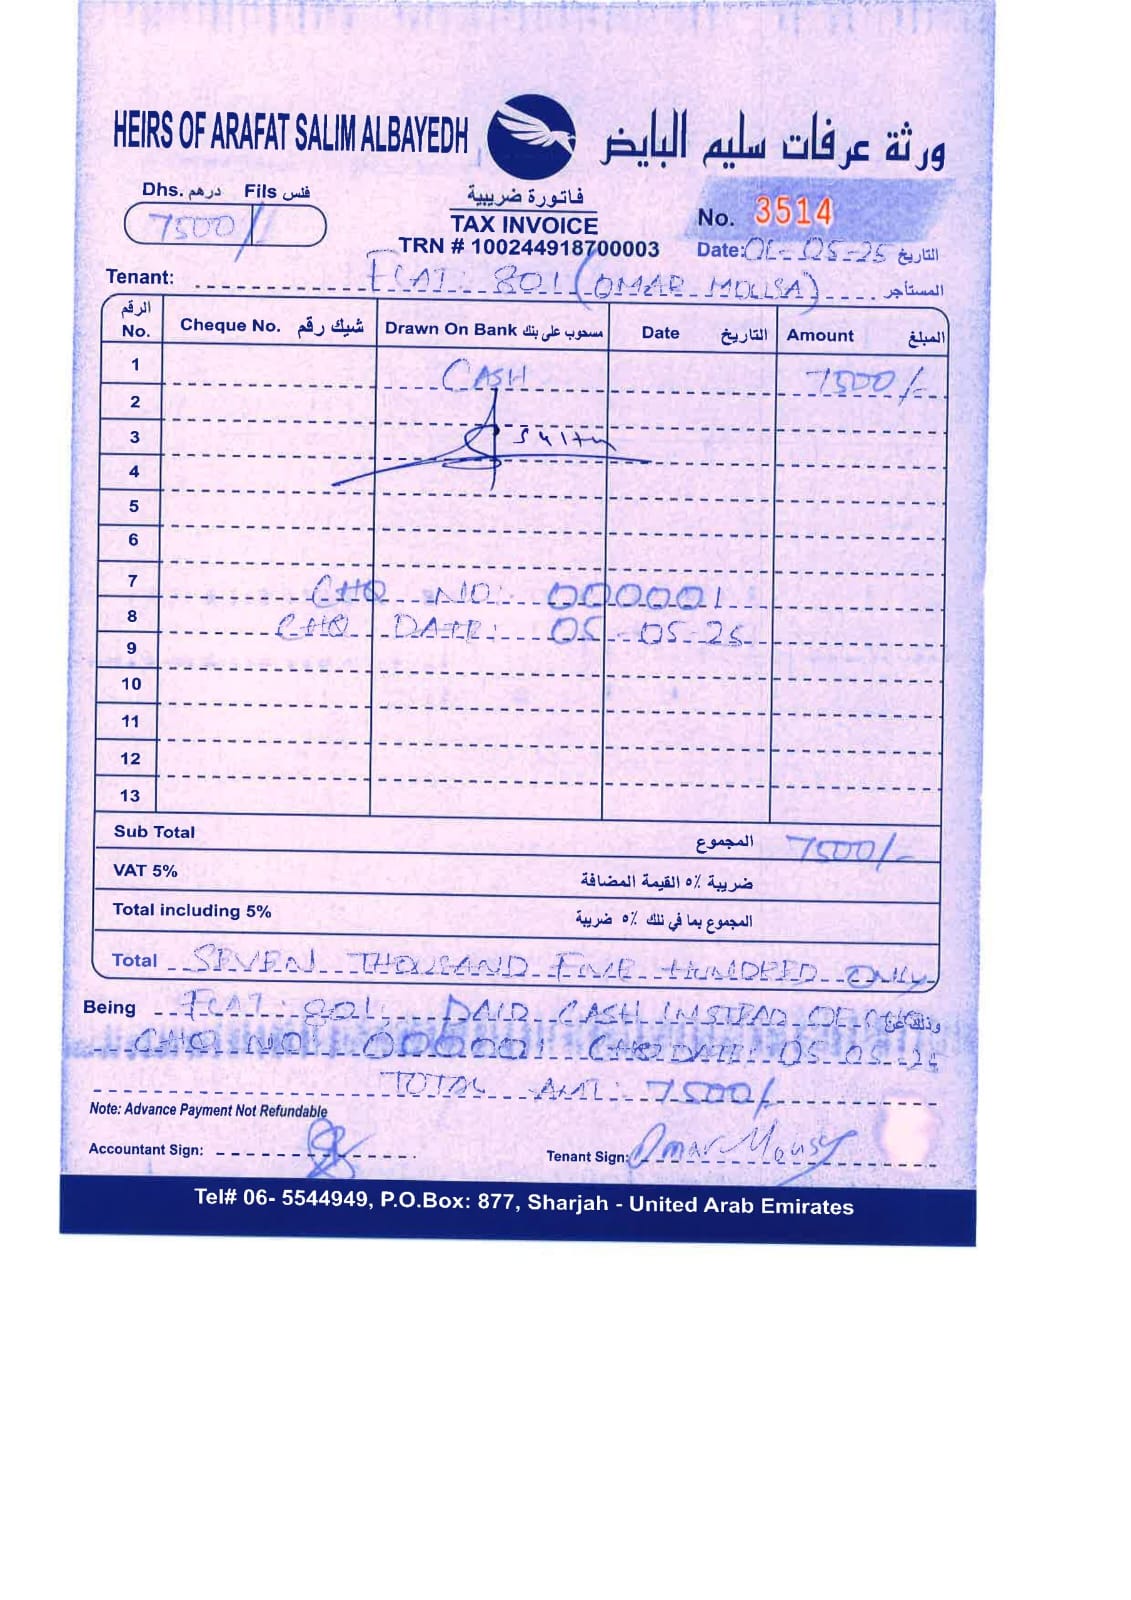 HEIRS OF ARAFAT SALIM ALBAYEDH
ورثة عرفات سليم البايض
Dhs. درهم Fils فلس
7500/
فاتورة ضريبية
TAX INVOICE
TRN # 100244918700003
No. 3514
Date: 05-25 التاريخ
Tenant: FLAT: 801 (OMAR MOUSA) المستأجر
الرقم No. Cheque No. شيك رقم Drawn On Bank مسحوب على بنك Date التاريخ Amount المبلغ
1 CASH 7500/-
2
3
4
5
6
7 CHQ NO: 000001
8 CHQ DATE: 05-05-25
9
10
11
12
13
Sub Total المجموع 7500/-
VAT 5% ضريبة ٥٪ القيمة المضافة
Total including 5% المجموع بما في ذلك ٥٪ ضريبة
Total SEVEN THOUSAND FIVE HUNDRED ONLY
Being FLAT: 801, PAID CASH INSTEAD OF CHQ وذلك عن
CHQ NO: 000001 CHQ DATE: 05-05-25
TOTAL AMT: 7500/-
Note: Advance Payment Not Refundable
Accountant Sign:
Tenant Sign: Omar Mousa
Tel# 06- 5544949, P.O.Box: 877, Sharjah - United Arab Emirates